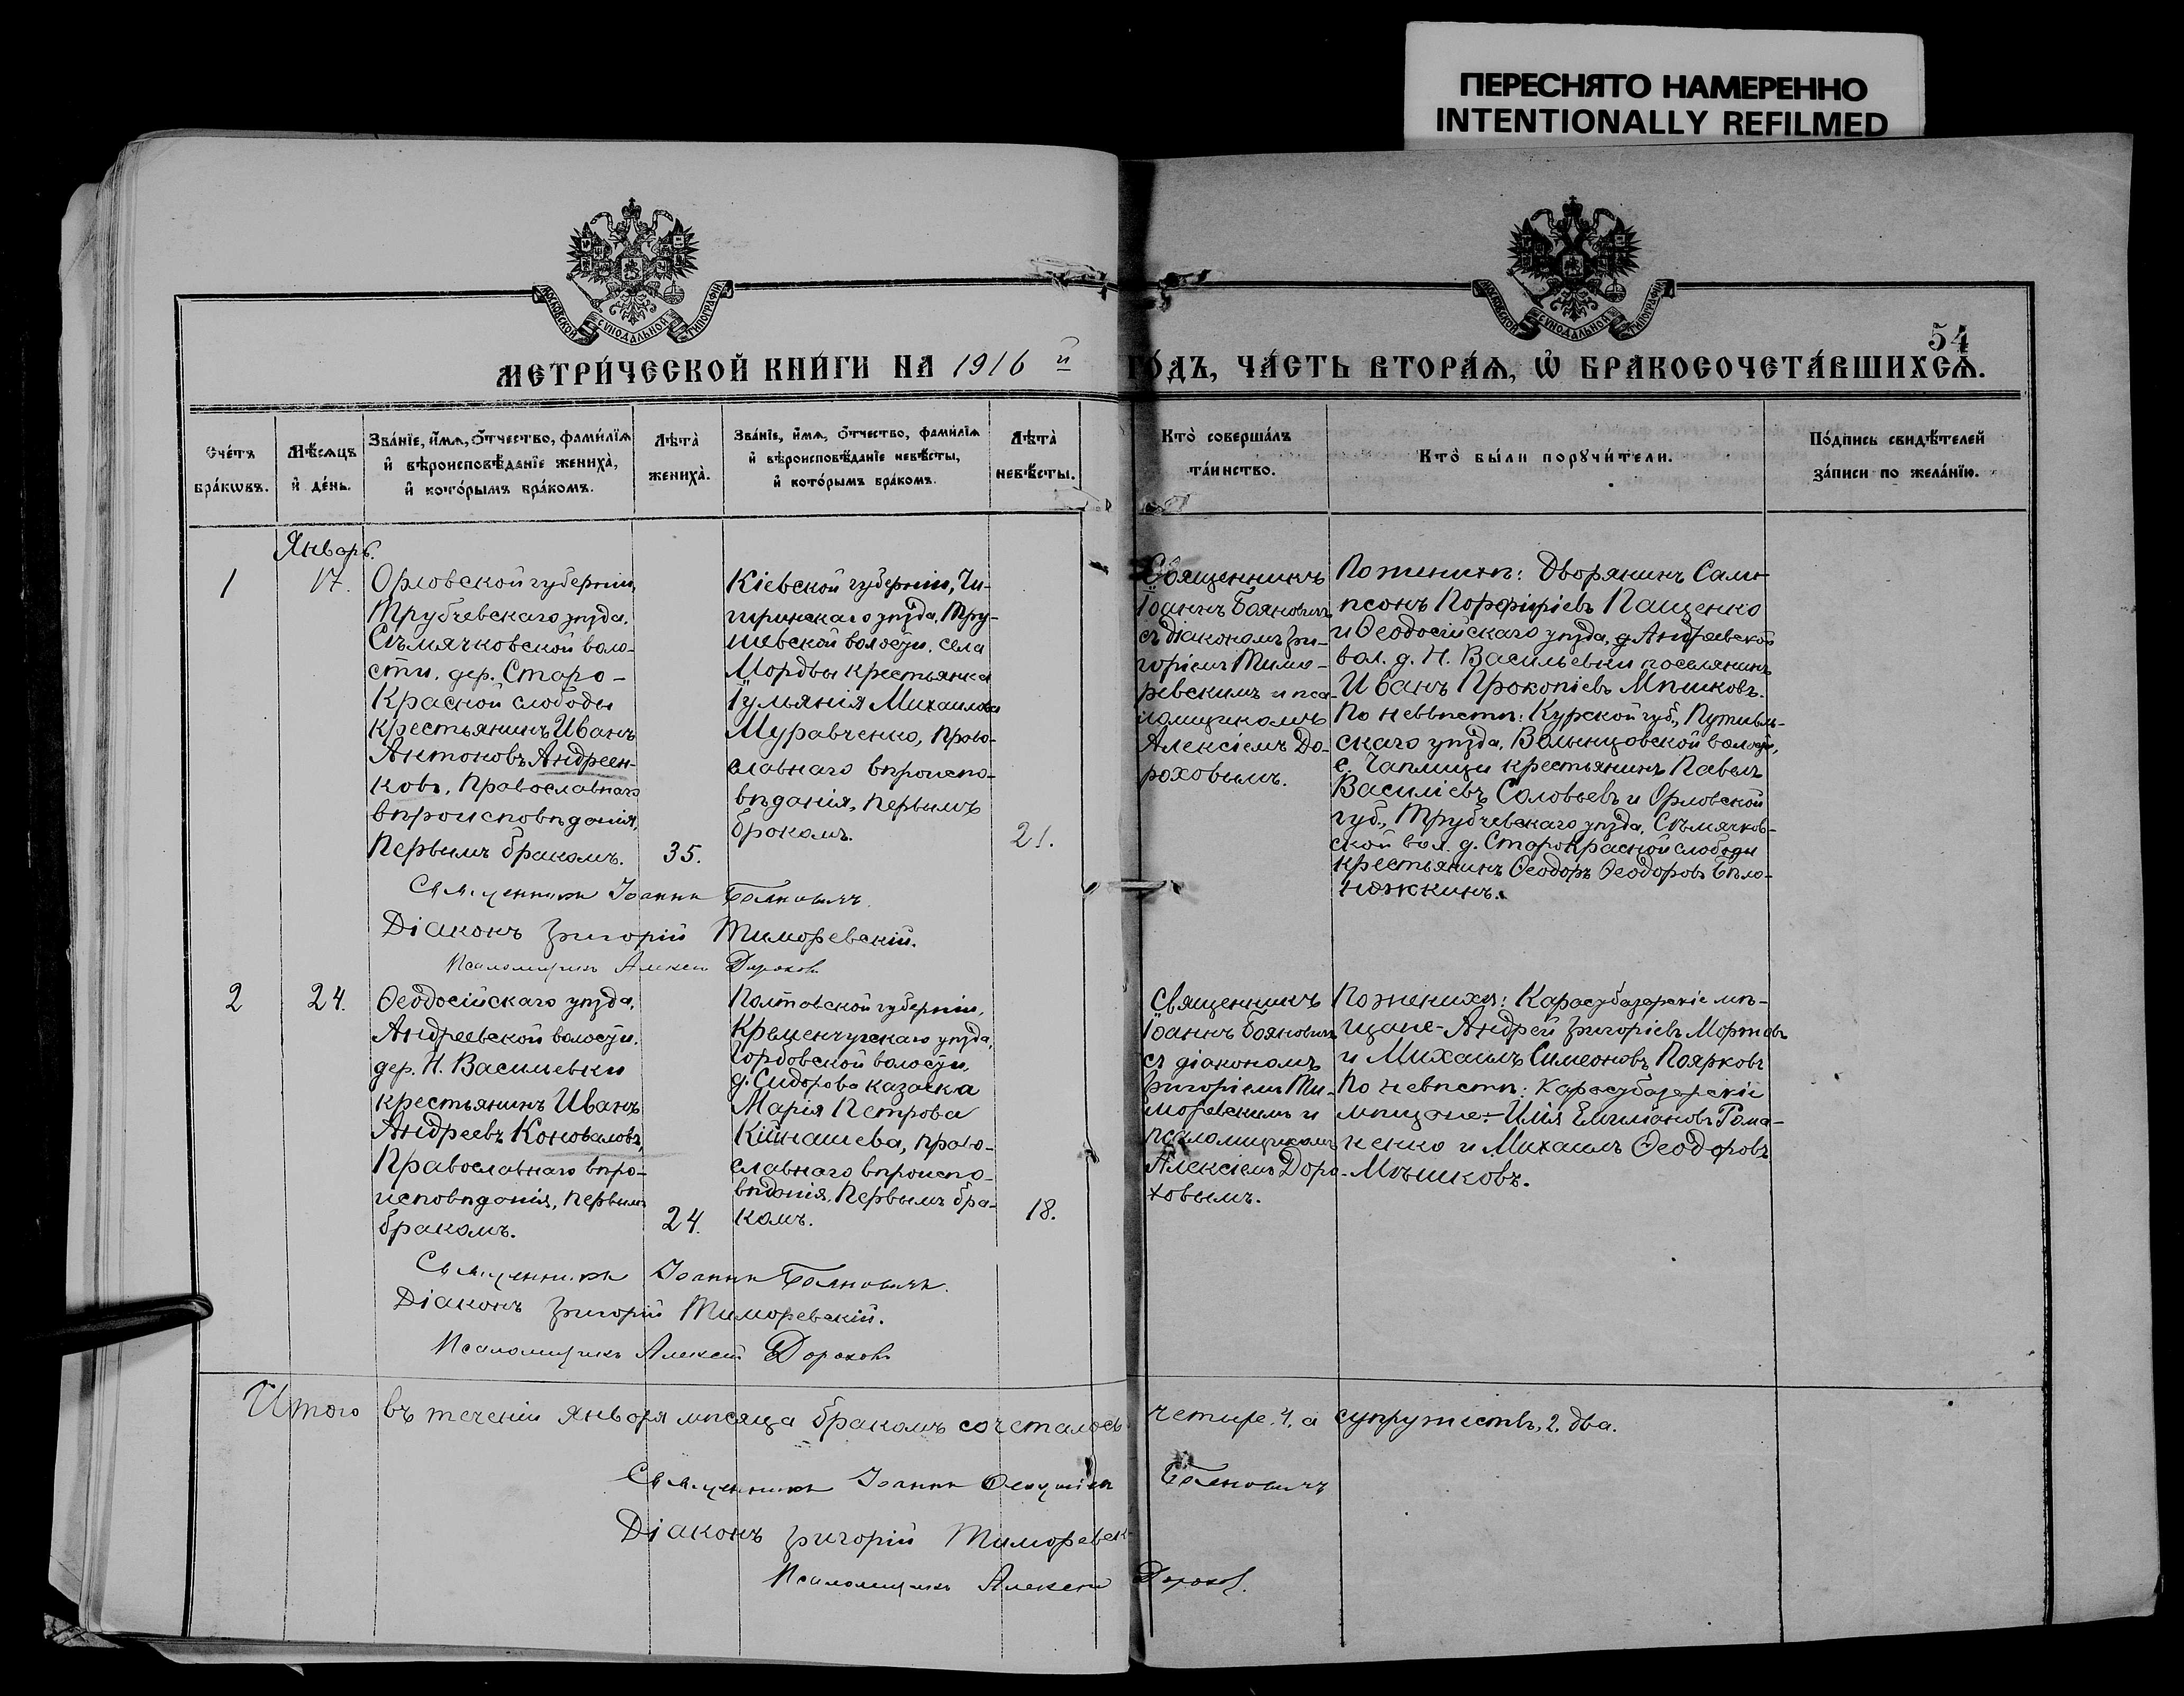 ПЕРЕСНЯТО НАМЕРЕННО
INTENTIONALLY REFILMED
МОСКОВСКОЙ СУНОДАЛЬНОЙ ТИПОГРАФІИ
МОСКОВСКОЙ СУНОДАЛЬНОЙ ТИПОГРАФІИ
54
МЕТРИ́ЧЕСКОЙ КНИ́ГИ НА 1916 й ГО́ДЪ, ЧА́СТЬ ВТОРА́Ѧ, Ѡ҆ БРАКОСОЧЕТА́ВШИХСѦ.
Сче́тъ
бра́кѡвъ.
Мѣ́сѧцъ
и҆ де́нь.
Зва́нїе, и҆́мѧ, ѻ҆́тчество, фами́лїѧ
и҆ вѣроисповѣ́данїе жениха̀,
и҆ кото́рымъ бра́комъ.
Лѣта̀
жениха̀.
Зва́нїе, и҆́мѧ, ѻ҆́тчество, фами́лїѧ
и҆ вѣроисповѣ́данїе невѣ́сты,
и҆ кото́рымъ бра́комъ.
Лѣта̀
невѣ́сты.
Кто̀ соверша́лъ
та́инство.
Кто̀ бы́ли порꙋчи́тели.
По́дпись свидѣ́телей
за́писи по жела́нїю.
Январь.
1
17.
Орловской губерніи,
Трубчевскаго уѣзда,
Съмячковской воло-
сти, дер. Старо-
Красной слободы
крестьянинъ Иванъ
Антоновъ Андреен-
ковъ, Православнаго
вѣроисповѣданія,
Первымъ бракомъ.
35.
Кіевской губерніи, Чи-
гиринскаго уѣзда, Тру-
шевской волости, села
Мордвы крестьянка
Іульянія Михаилова
Муравченко, право-
славнаго вѣроиспо-
вѣданія, первымъ
бракомъ.
21.
Священникъ
Іоаннъ Бояновичъ
съ діакономъ Гри-
горіемъ Тимо-
ревскимъ и пса-
ломщикомъ
Алексіемъ До-
роховымъ.
По женихѣ: Дворянинъ Сам-
псонъ Порфиріевъ Пащенко
и Ѳеодосійскаго уѣзда, Андреевской
вол. д. Н. Васильевки поселянинъ
Иванъ Прокопіевъ Мѣшковъ.
По невѣстѣ: Курской губ., Путивль-
скаго уѣзда, Волынцовской волости,
с. Чаплищи крестьянинъ Павелъ
Василіевъ Соловьевъ и Орловской
губ., Трубчевскаго уѣзда, Съмячков-
ской вол. д. СтароКрасной слободы
крестьянинъ Ѳеодоръ Ѳеодоровъ Бѣло-
ножкинъ.
Священникъ Іоаннъ Бояновичъ.
Діаконъ Григорій Тиморевскій.
Псаломщикъ Алексій Дорохов
2
24.
Ѳеодосійскаго уѣзда,
Андреевской волости,
дер. Н. Васильевки
крестьянинъ Иванъ
Андреевъ Коноваловъ,
Православнаго вѣро-
исповѣданія, первымъ
бракомъ.
24.
Полтавской губерніи,
Кременчугскаго уѣзда,
волости,
д. Сидорова казачка
Марія Петрова
право-
славнаго вѣроиспо-
вѣданія, Первымъ бра-
комъ.
18.
Священникъ
Іоаннъ Бояновичъ
съ діакономъ
Григоріемъ Ти-
моревскимъ и
псаломщикомъ
Алексіемъ Доро-
ховымъ.
По женихѣ: Карасубазарскіе мѣ-
щане - Андрей Григоріевъ Мортовъ
и Михаилъ Симеоновъ Поярковъ
По невѣстѣ: Карасубазарскіе
мѣщане: Илія Емиліановъ Рома-
ненко и Михаилъ Ѳеодоровъ
Мѣшковъ.
Священникъ Іоаннъ Бояновичъ.
Діаконъ Григорій Тиморевскій.
Псаломщикъ Алексій Дорохов
Итого въ теченіи января мѣсяца бракомъ сочеталось четыре, 4, а супружествъ, 2, два.
Священникъ Іоаннъ Бояновичъ
Діаконъ Григорій Тиморевск
Псаломщикъ Алексій Дорохов.